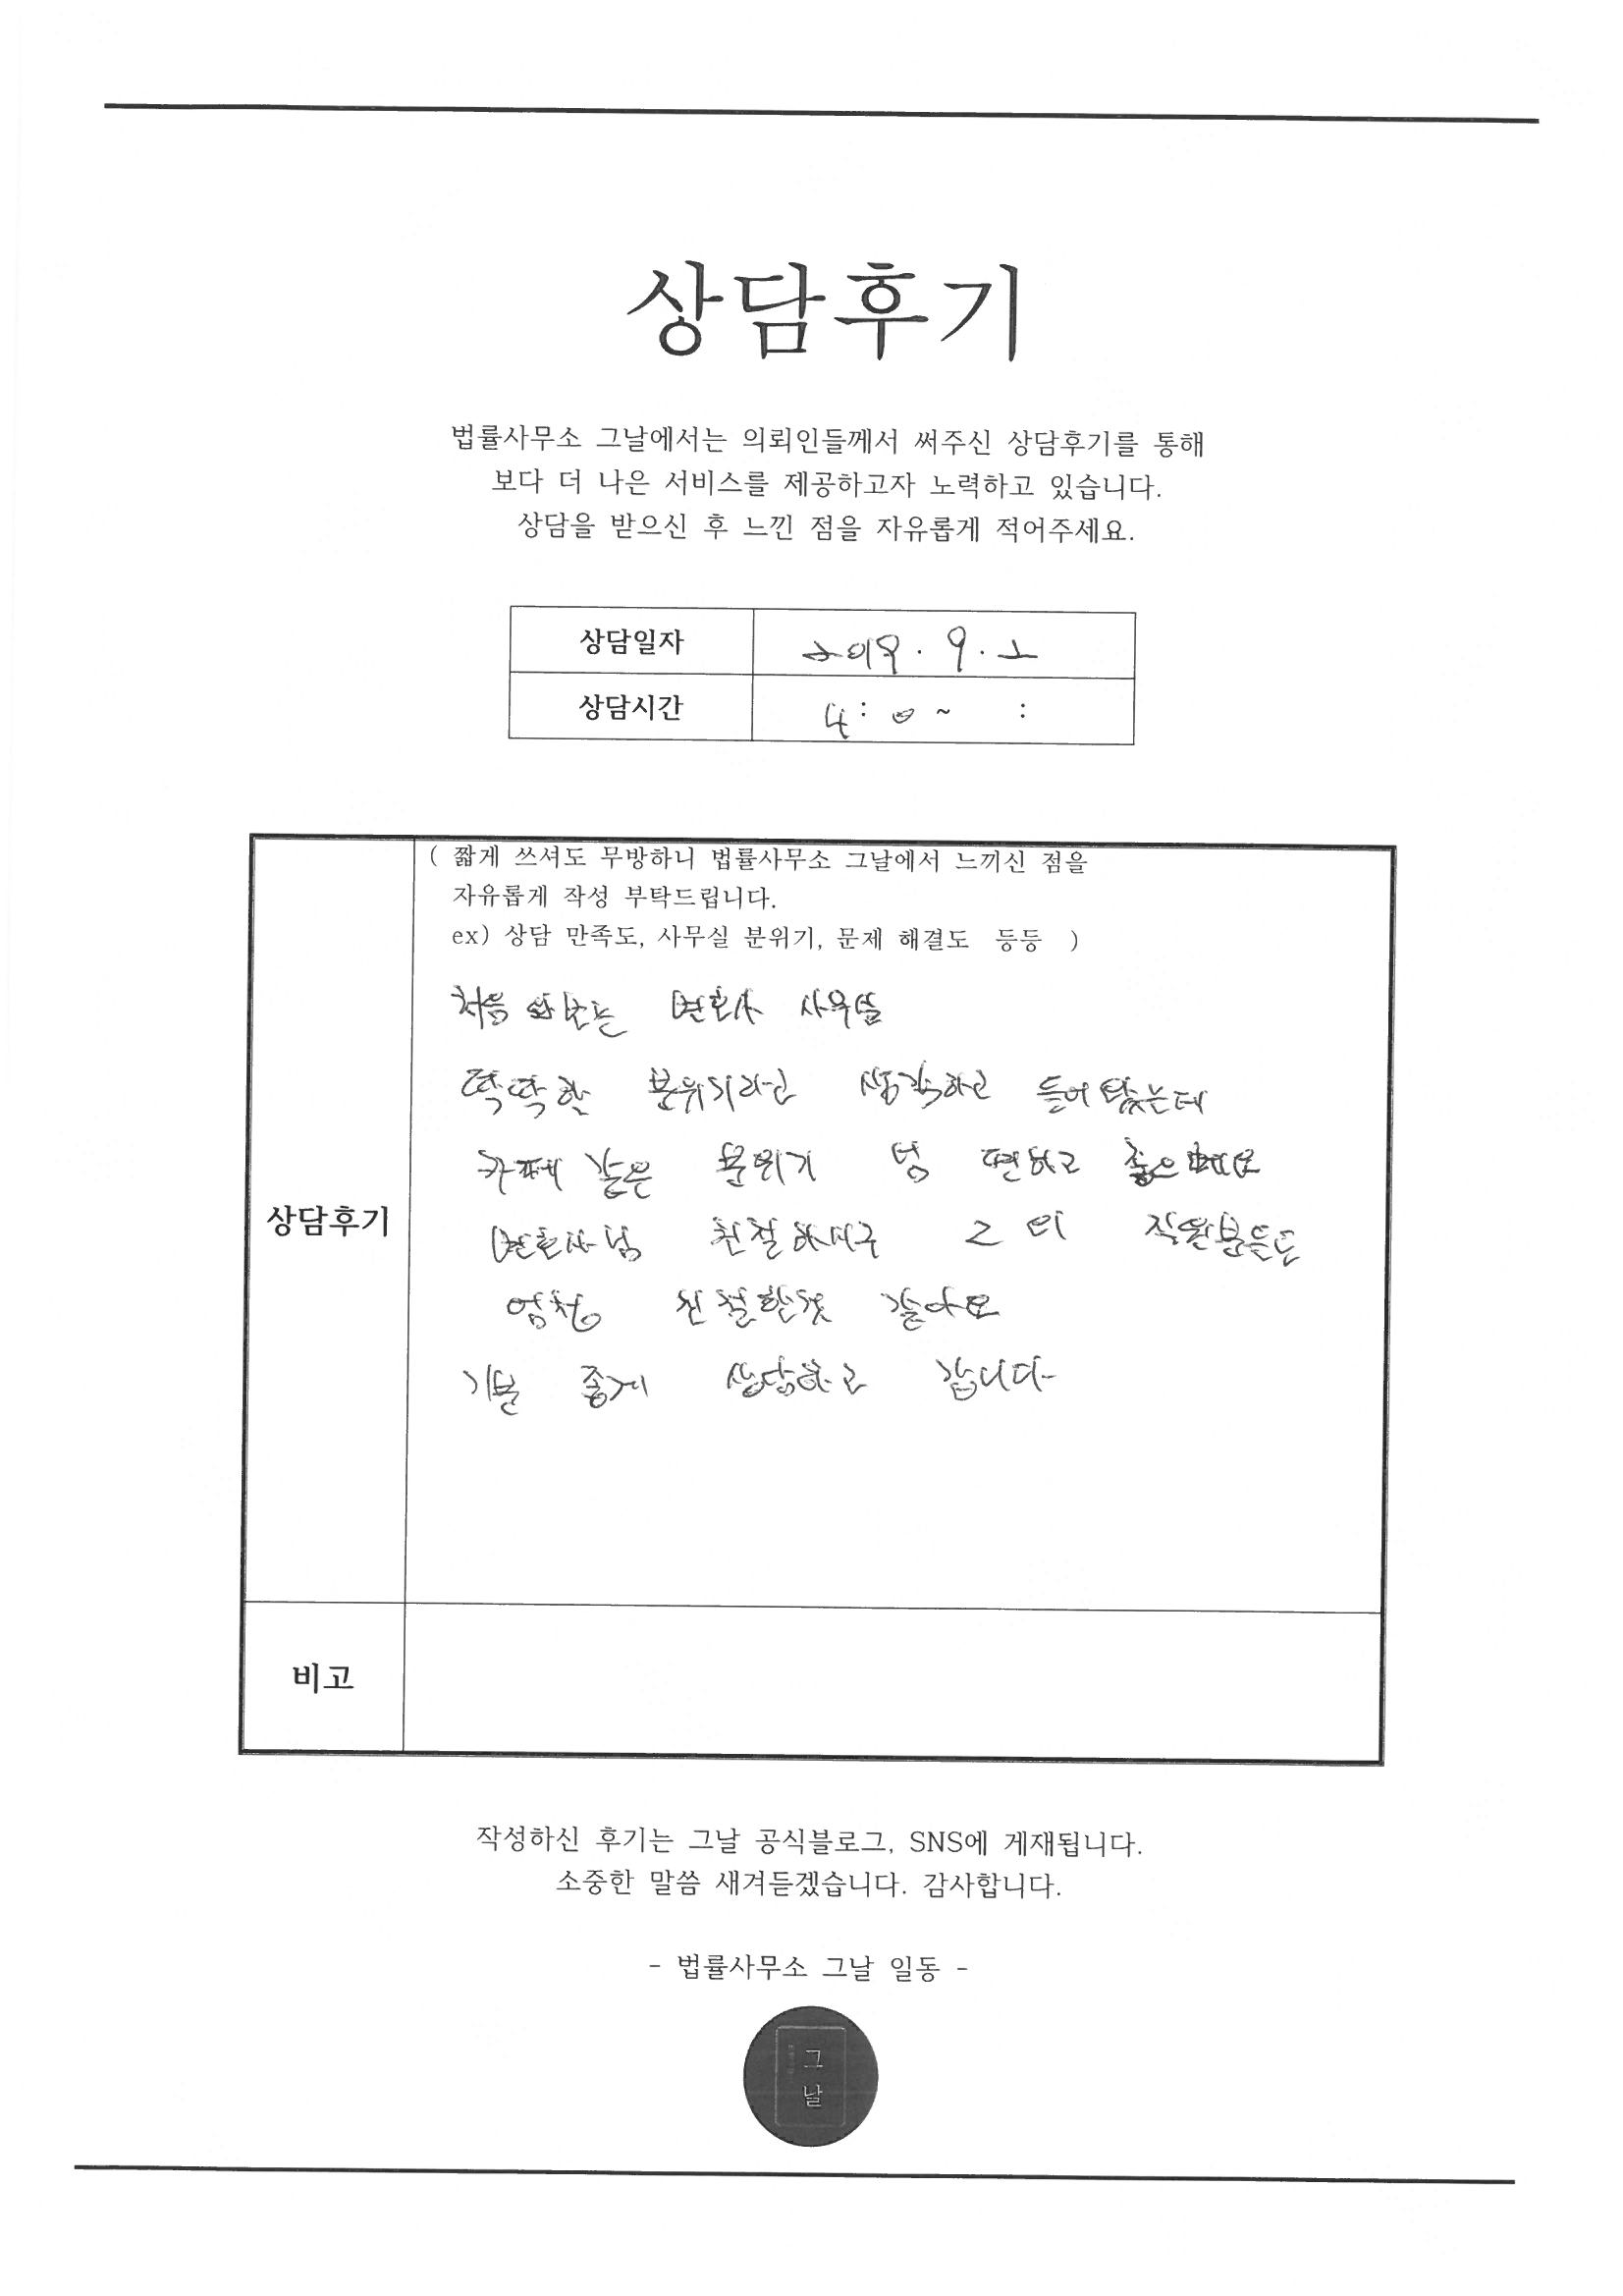 상담후기
법률사무소 그날에서는 의뢰인들께서 써주신 상담후기를 통해
보다 더 나은 서비스를 제공하고자 노력하고 있습니다.
상담을 받으신 후 느낀 점을 자유롭게 적어주세요.
상담일자 2019. 9. 2
상담시간 4 : 0 ~ :
( 짧게 쓰셔도 무방하니 법률사무소 그날에서 느끼신 점을
자유롭게 작성 부탁드립니다.
ex) 상담 만족도, 사무실 분위기, 문제 해결도 등등 )
처음 와보는 변호사 사무실
딱딱한 분위기라고 생각하고 들어왔는데
카페 같은 분위기 넘 편하고 좋으네요
상담후기
변호사님 친절하시구 그 외 직원분들도
엄청 친절한것 같아요
기분 좋게 상담하고 갑니다
비고
작성하신 후기는 그날 공식블로그, SNS에 게재됩니다.
소중한 말씀 새겨듣겠습니다. 감사합니다.
- 법률사무소 그날 일동 -
그
날